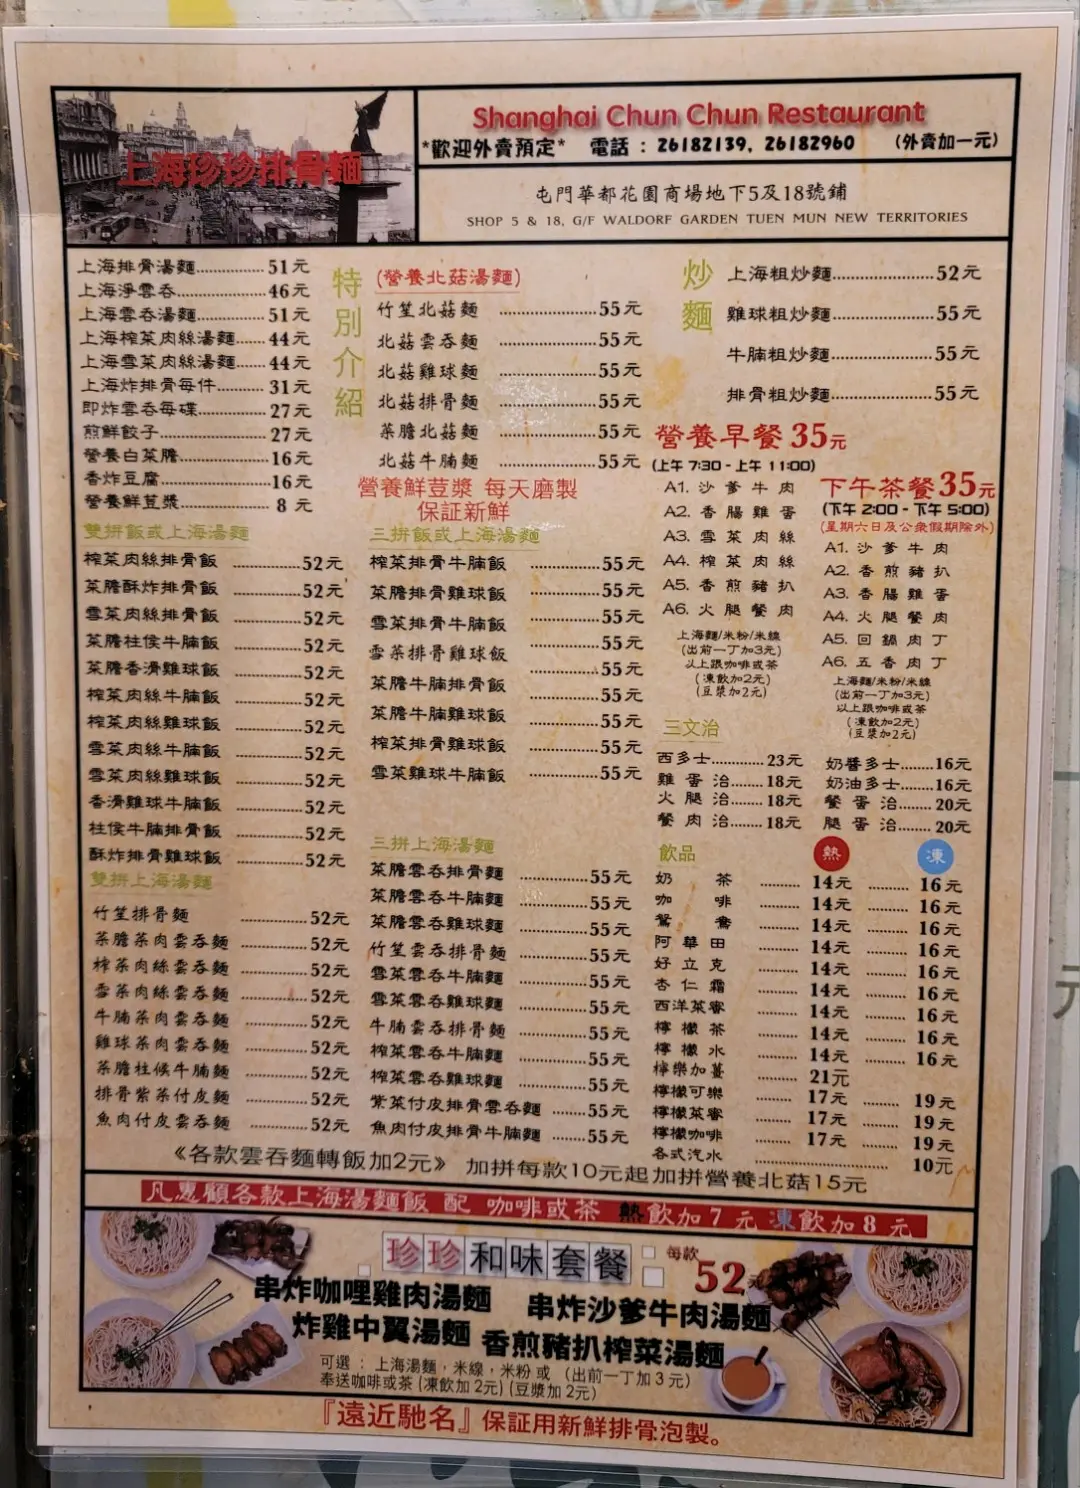 上海珍珍排骨麵
Shanghai Chun Chun Restaurant
*歡迎外賣預定* 電話：26182139, 26182960 (外賣加一元)
屯門華都花園商場地下5及18號鋪
SHOP 5 & 18, G/F WALDORF GARDEN TUEN MUN NEW TERRITORIES
上海排骨湯麵.............. 51元
上海淨雲吞.............. 46元
上海雲吞湯麵.............. 51元
上海榨菜肉絲湯麵...... 44元
上海雪菜肉絲湯麵...... 44元
上海炸排骨每件.......... 31元
即炸雲吞每碟.............. 27元
煎鮮餃子...................... 27元
營養白菜膽.................. 16元
香炸豆腐...................... 16元
營養鮮荳漿.................. 8 元
特別介紹
(營養北菇湯麵)
竹笙北菇麵 ......................55元
北菇雲吞麵 ......................55元
北菇雞球麵 ......................55元
北菇排骨麵 ......................55元
菜膽北菇麵 ......................55元
北菇牛腩麵 ......................55元
營養鮮荳漿 每天磨製
保証新鮮
炒麵
上海粗炒麵......................52元
雞球粗炒麵......................55元
牛腩粗炒麵......................55元
排骨粗炒麵......................55元
雙拼飯或上海湯麵
榨菜肉絲排骨飯 ..............52元
菜膽酥炸排骨飯 ..............52元
雪菜肉絲排骨飯 ..............52元
菜膽柱侯牛腩飯 ..............52元
菜膽香滑雞球飯 ..............52元
榨菜肉絲牛腩飯 ..............52元
榨菜肉絲雞球飯 ..............52元
雪菜肉絲牛腩飯 ..............52元
雪菜肉絲雞球飯 ..............52元
香滑雞球牛腩飯 ..............52元
柱侯牛腩排骨飯 ..............52元
酥炸排骨雞球飯 ..............52元
雙拼上海湯麵
竹笙排骨麵 ....................52元
菜膽菜肉雲吞麵 ..............52元
榨菜肉絲雲吞麵 ..............52元
雪菜肉絲雲吞麵 ..............52元
牛腩菜肉雲吞麵 ..............52元
雞球菜肉雲吞麵 ..............52元
菜膽柱候牛腩麵 ..............52元
排骨紫菜付皮麵 ..............52元
魚肉付皮雲吞麵 ..............52元
三拼飯或上海湯麵
榨菜排骨牛腩飯 ..............55元
菜膽排骨雞球飯 ..............55元
雪菜排骨牛腩飯 ..............55元
雪菜排骨雞球飯 ..............55元
菜膽牛腩排骨飯 ..............55元
菜膽牛腩雞球飯 ..............55元
榨菜排骨雞球飯 ..............55元
雪菜雞球牛腩飯 ..............55元
三拼上海湯麵
菜膽雲吞排骨麵 ..............55元
菜膽雲吞牛腩麵 ..............55元
菜膽雲吞雞球麵 ..............55元
竹笙雲吞排骨麵 ..............55元
雪菜雲吞牛腩麵 ..............55元
雪菜雲吞雞球麵 ..............55元
牛腩雲吞排骨麵 ..............55元
榨菜雲吞牛腩麵 ..............55元
榨菜雲吞雞球麵 ..............55元
紫菜付皮排骨雲吞麵 .......55元
魚肉付皮排骨牛腩麵 .......55元
營養早餐35元
(上午 7:30 - 上午 11:00)
A1. 沙爹牛肉
A2. 香腸雞蛋
A3. 雪菜肉絲
A4. 榨菜肉絲
A5. 香煎豬扒
A6. 火腿餐肉
上海麵/米粉/米線
(出前一丁加3元)
以上跟咖啡或茶
(凍飲加2元)
(豆漿加2元)
下午茶餐35元
(下午 2:00 - 下午 5:00)
(星期六日及公衆假期除外)
A1. 沙爹牛肉
A2. 香煎豬扒
A3. 香腸雞蛋
A4. 火腿餐肉
A5. 回鍋肉丁
A6. 五香肉丁
上海麵/米粉/米線
(出前一丁加3元)
以上跟咖啡或茶
(凍飲加2元)
(豆漿加2元)
三文治
西多士............23元
雞蛋治........18元
火腿治........18元
餐肉治........18元
奶醬多士........16元
奶油多士........16元
餐蛋治........20元
腿蛋治........20元
飲品 熱 凍
奶茶 .......... 14元 .......... 16元
咖啡 .......... 14元 .......... 16元
鴛鴦 .......... 14元 .......... 16元
阿華田 .......... 14元 .......... 16元
好立克 .......... 14元 .......... 16元
杏仁霜 .......... 14元 .......... 16元
西洋菜蜜 .......... 14元 .......... 16元
檸檬茶 .......... 14元 .......... 16元
檸檬水 .......... 14元 .......... 16元
檸樂加薑 .......... 21元
檸檬可樂 .......... 17元 .......... 19元
檸檬菜蜜 .......... 17元 .......... 19元
檸檬咖啡 .......... 17元 .......... 19元
各式汽水 .................................. 10元
《各款雲吞麵轉飯加2元》 加拼每款10元起加拼營養北菇15元
凡惠顧各款上海湯麵飯 配 咖啡或茶 熱飲加7元凍飲加8元
珍珍和味套餐 每款52元
串炸咖哩雞肉湯麵 串炸沙爹牛肉湯麵
炸雞中翼湯麵 香煎豬扒榨菜湯麵
可選：上海湯麵，米線，米粉 或 (出前一丁加3元)
奉送咖啡或茶(凍飲加2元)(豆漿加2元)
『遠近馳名』保証用新鮮排骨泡製。